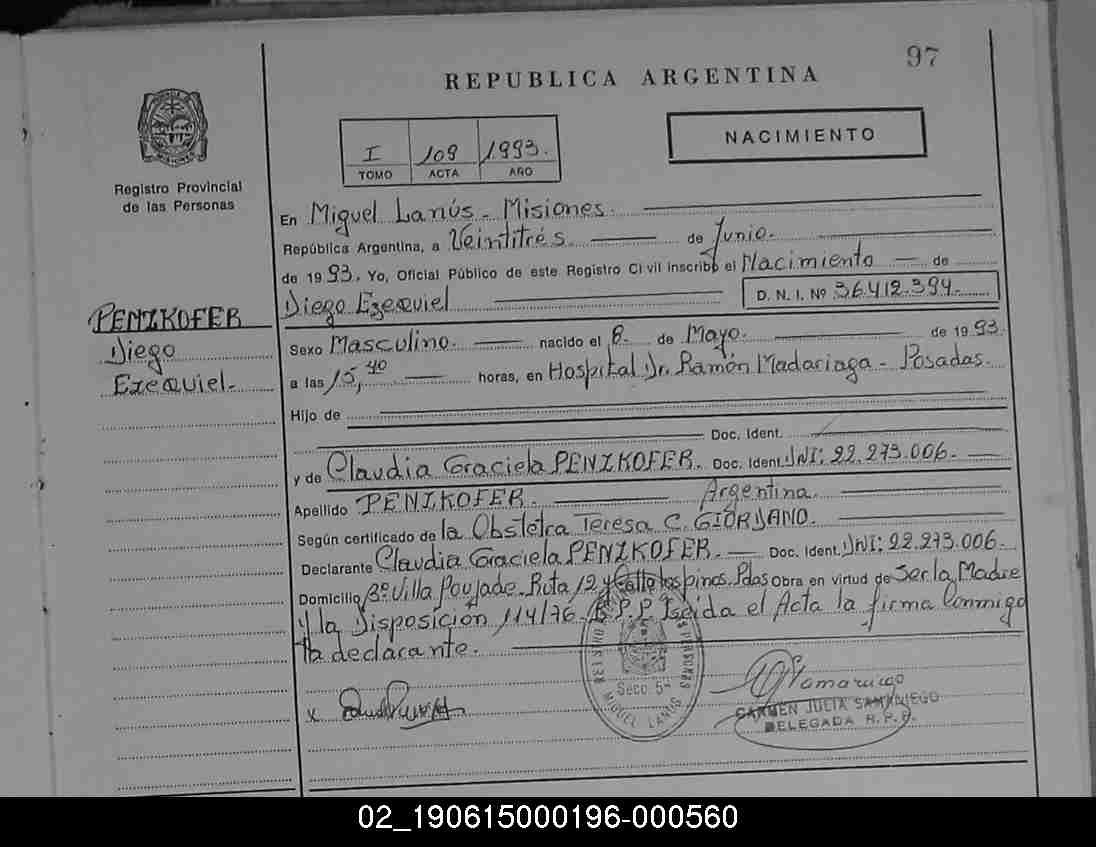 97
REPUBLICA ARGENTINA
I 109 1993.
TOMO ACTA AÑO
NACIMIENTO
Registro Provincial
de las Personas
En Miguel Lanús - Misiones.
República Argentina, a Veintitrés de Junio.
de 1993. Yo, Oficial Público de este Registro Civil inscribo el Nacimiento de
Diego Ezequiel D. N. I. Nº 36.412.394-
PENZKOFER
Diego
Ezequiel-
Sexo Masculino. nacido el 8. de Mayo. de 1993.
a las 15,40 horas, en Hospital Dr. Ramón Madariaga - Posadas.
Hijo de
Doc. Ident.
y de Claudia Graciela PENZKOFER. Doc. Ident. DNI: 22.273.006.
Apellido PENZKOFER. Argentina.
Según certificado de la Obstetra Teresa C. GIORDANO.
Declarante Claudia Graciela PENZKOFER. Doc. Ident. DNI: 22.273.006.
Domicilio Bº Villa Poujade. Ruta 12 y Calle los pinos. Pdas Obra en virtud de Ser la Madre
y la Disposición 114/76. R.P.P. Leída el Acta la firma Conmigo
la declarante.
Secc. 5ª
MIGUEL LANUS
x
CARMEN JULIA SAMANIEGO
DELEGADA R. P. P.
02_190615000196-000560